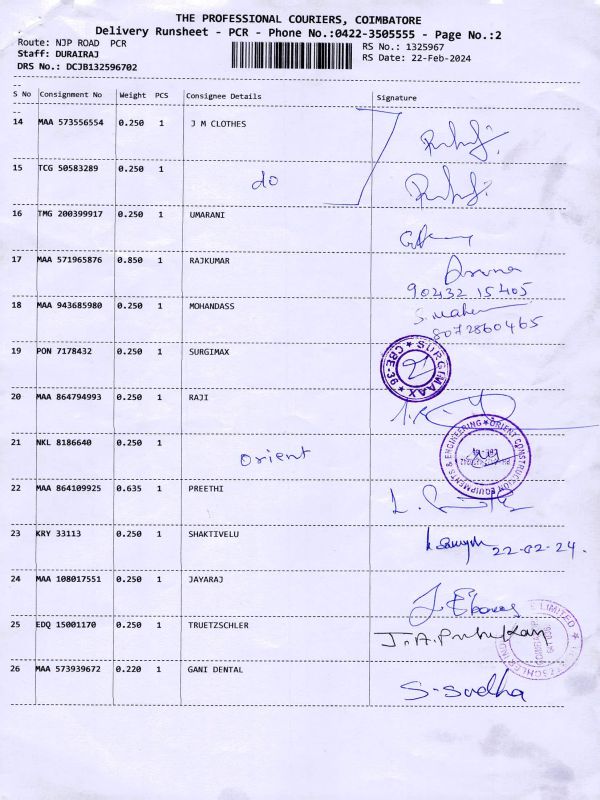 THE PROFESSIONAL COURIERS, COIMBATORE
Delivery Runsheet - PCR - Phone No.:0422-3505555 - Page No.:2
Route: NJP ROAD PCR
RS No.: 1325967
Staff: DURAIRAJ
RS Date: 22-Feb-2024
DRS No.: DCJB132596702
S No Consignment No Weight PCS Consignee Details Signature
14 MAA 573556554 0.250 1 J M CLOTHES
15 TCG 50583289 0.250 1 do
16 TMG 200399917 0.250 1 UMARANI
17 MAA 571965876 0.850 1 RAJKUMAR Aruna
90432 15405
18 MAA 943685980 0.250 1 MOHANDASS
8072860465
19 PON 7178432 0.250 1 SURGIMAX
SURGIMAAX ★ CBE-36 ★
20 MAA 864794993 0.250 1 RAJI
21 NKL 8186640 0.250 1 Orient
ORIENT CONSTRUCTION EQUIPMENTS & ENGINEERING ★
22 MAA 864109925 0.635 1 PREETHI
23 KRY 33113 0.250 1 SHAKTIVELU 22-02-24.
24 MAA 108017551 0.250 1 JAYARAJ
25 EDQ 15001170 0.250 1 TRUETZSCHLER
LIMITED ★
26 MAA 573939672 0.220 1 GANI DENTAL S-Sudha